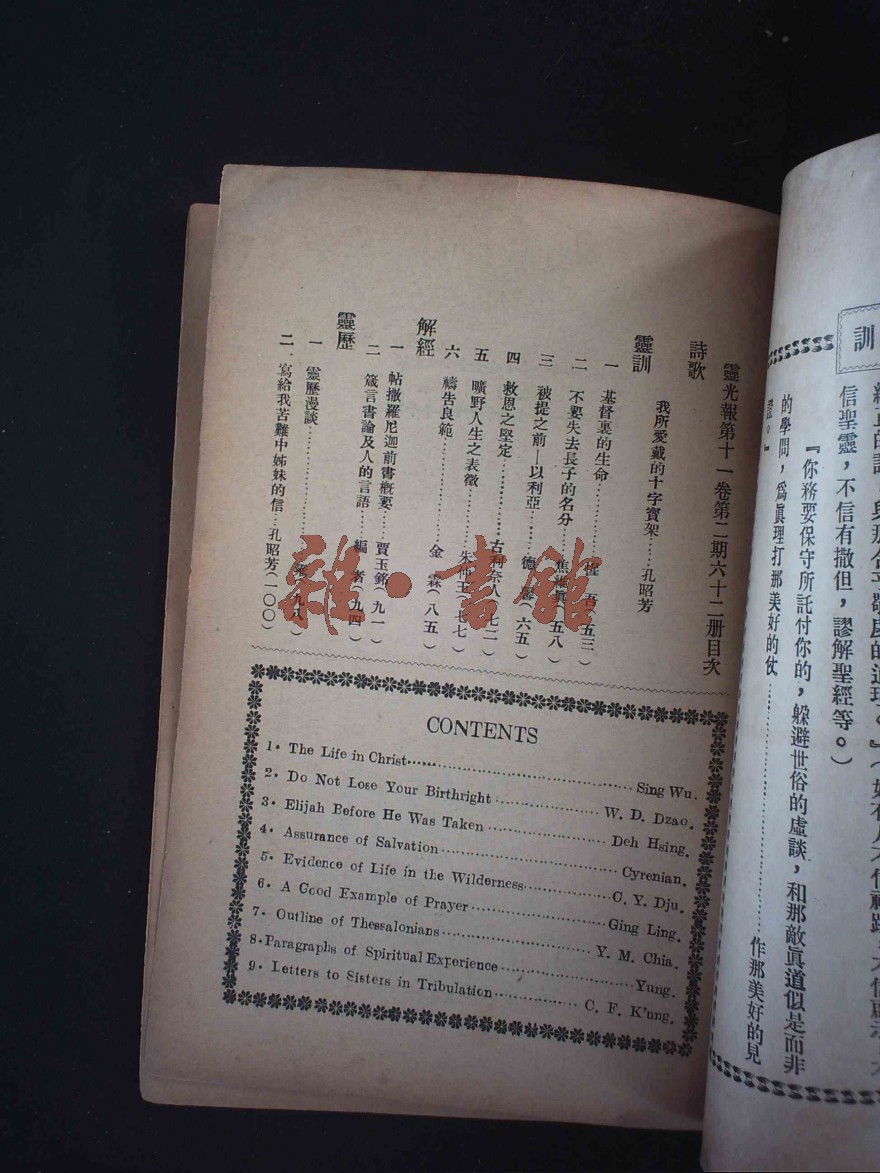 靈光報第十一卷第二期六十二册目次
詩歌
我所愛戴的十字寶架……孔昭芳
靈訓
一 基督裏的生命……惺 吾(五三)
二 不要失去長子的名分……焦維眞(五八)
三 被提之前—以利亞……德 馨(六五)
四 救恩之堅定……古利奈人(七二)
五 曠野人生之表徵……朱仲玉(七七)
六 禱告良範……金 霖(八五)
解經
一 帖撒羅尼迦前書槪要……賈玉銘(九一)
二 箴言書論及人的言語……編 者(九四)
靈歷
一 靈歷漫談……(九八)
二、寫給我苦難中姊妹的信…孔昭芳(一〇〇)
CONTENTS
1. The Life in Christ……Sing Wu.
2. Do Not Lose Your Birthright……W. D. Dzao.
3. Elijah Before He Was Taken……Deh Hsing.
4. Assurance of Salvation……Cyrenian.
5. Evidence of Life in the Wilderness……C. Y. Dju.
6. A Good Example of Prayer……Ging Ling.
7. Outline of Thessalonians……Y. M. Chia.
8. Paragraphs of Spiritual Experience……Yung.
9. Letters to Sisters in Tribulation……C. F. K'ung.
雜·書館
訓
信聖靈,不信有撒但,謬解聖經等。)
『你務要保守所託付你的,躲避世俗的虛談,和那敵眞道似是而非
的學問,爲眞理打那美好的仗……作那美好的見
證。』